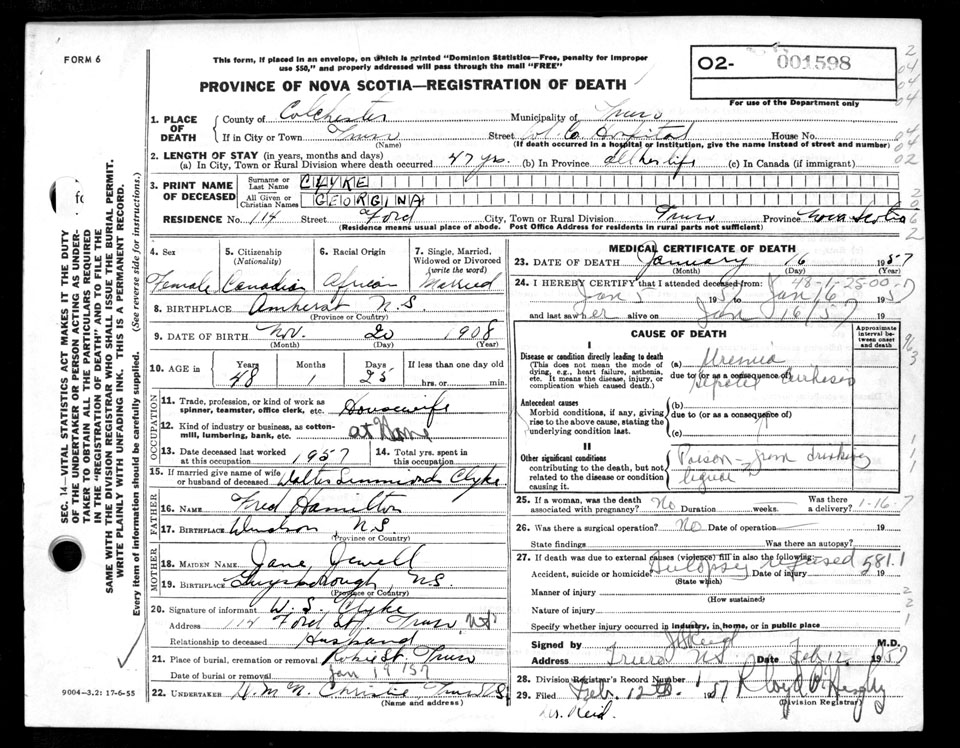 FORM 6
This form, if placed in an envelope, on which is printed "Dominion Statistics—Free, penalty for improper
use $50," and properly addressed will pass through the mail "FREE"
PROVINCE OF NOVA SCOTIA—REGISTRATION OF DEATH
O2- 001598
For use of the Department only
1. PLACE OF DEATH
County of Colchester Municipality of Truro
If in City or Town Truro Street Col. Co. Hospital House No.
(Name) (If death occurred in a hospital or institution, give the name instead of street and number)
2. LENGTH OF STAY (in years, months and days)
(a) In City, Town or Rural Division where death occurred 47 yrs. (b) In Province all her life (c) In Canada (if immigrant)
3. PRINT NAME OF DECEASED
Surname or Last Name CLYKE
All Given or Christian Names GEORGINA
RESIDENCE No. 114 Street Ford City, Town or Rural Division Truro Province Nova Scotia
(Residence means usual place of abode. Post Office Address for residents in rural parts not sufficient)
4. Sex
Female
5. Citizenship (Nationality)
Canadian
6. Racial Origin
African
7. Single, Married, Widowed or Divorced (write the word)
Married
8. BIRTHPLACE Amherst N.S.
(Province or Country)
9. DATE OF BIRTH Nov. 20 1908
(Month) (Day) (Year)
10. AGE in Years Months Days If less than one day
48 1 25 hrs. or min.
OCCUPATION
11. Trade, profession, or kind of work as spinner, teamster, office clerk, etc. Housewife
12. Kind of industry or business, as cotton-mill, lumbering, bank, etc. at Home
13. Date deceased last worked at this occupation 1957
14. Total yrs. spent in this occupation
15. If married give name of wife or husband of deceased Walter Simmonds Clyke
FATHER
16. NAME Fred Hamilton
17. BIRTHPLACE Windsor N.S.
(Province or Country)
MOTHER
18. MAIDEN NAME Jane Jewell
19. BIRTHPLACE Guysborough, N.S.
(Province or Country)
20. Signature of informant W. S. Clyke
Address 114 Ford St. Truro, N.S.
Relationship to deceased Husband
21. Place of burial, cremation or removal Robie St. Truro
Date of burial or removal Jan 19 1957
22. UNDERTAKER Christie Truro N.S.
(Name and address)
9004-3.2: 17-6-55
SEC. 14—VITAL STATISTICS ACT MAKES IT THE DUTY
OF THE UNDERTAKER OR PERSON ACTING AS UNDER-
TAKER TO OBTAIN ALL THE PARTICULARS REQUIRED
IN THE "REGISTRATION OF DEATH" AND TO FILE THE
SAME WITH THE DIVISION REGISTRAR WHO SHALL ISSUE THE BURIAL PERMIT.
WRITE PLAINLY WITH UNFADING INK. THIS IS A PERMANENT RECORD.
Every item of information should be carefully supplied. (See reverse side for instructions.)
MEDICAL CERTIFICATE OF DEATH
23. DATE OF DEATH January 16 1957
(Month) (Day)
24. I HEREBY CERTIFY that I attended deceased from:
48-1-25-00-
Jan 5 1957 Jan 16 1957
and last saw her alive on Jan 16/57 19
CAUSE OF DEATH
Approximate interval between onset and death
I
Disease or condition directly leading to death
(This does not mean the mode of dying, e.g., heart failure, asthenia, etc. It means the disease, injury, or complication which caused death.)
(a) Uremia
due to (or as a consequence of)
Antecedent causes
Morbid conditions, if any, giving rise to the above cause, stating the underlying condition last.
(b)
due to (or as a consequence of)
(c)
II
Other significant conditions
contributing to the death, but not related to the disease or condition causing it.
Poison - from drinking
liquor
25. If a woman, was the death associated with pregnancy? No Duration weeks. Was there a delivery?
1-16-7
26. Was there a surgical operation? No Date of operation 19
State findings Was there an autopsy?
27. If death was due to external causes (violence) fill in also the following:
Autopsy refused 581.1
Accident, suicide or homicide? Date of injury 19
(State which)
Manner of injury
(How sustained)
Nature of injury
Specify whether injury occurred in industry, in home, or in public place
Signed by Reid M.D.
Address Truro NS Date Feb 12 1957
28. Division Registrar's Record Number 1
29. Filed Feb. 12th. 1957
(Division Registrar)
Dr. Reid.